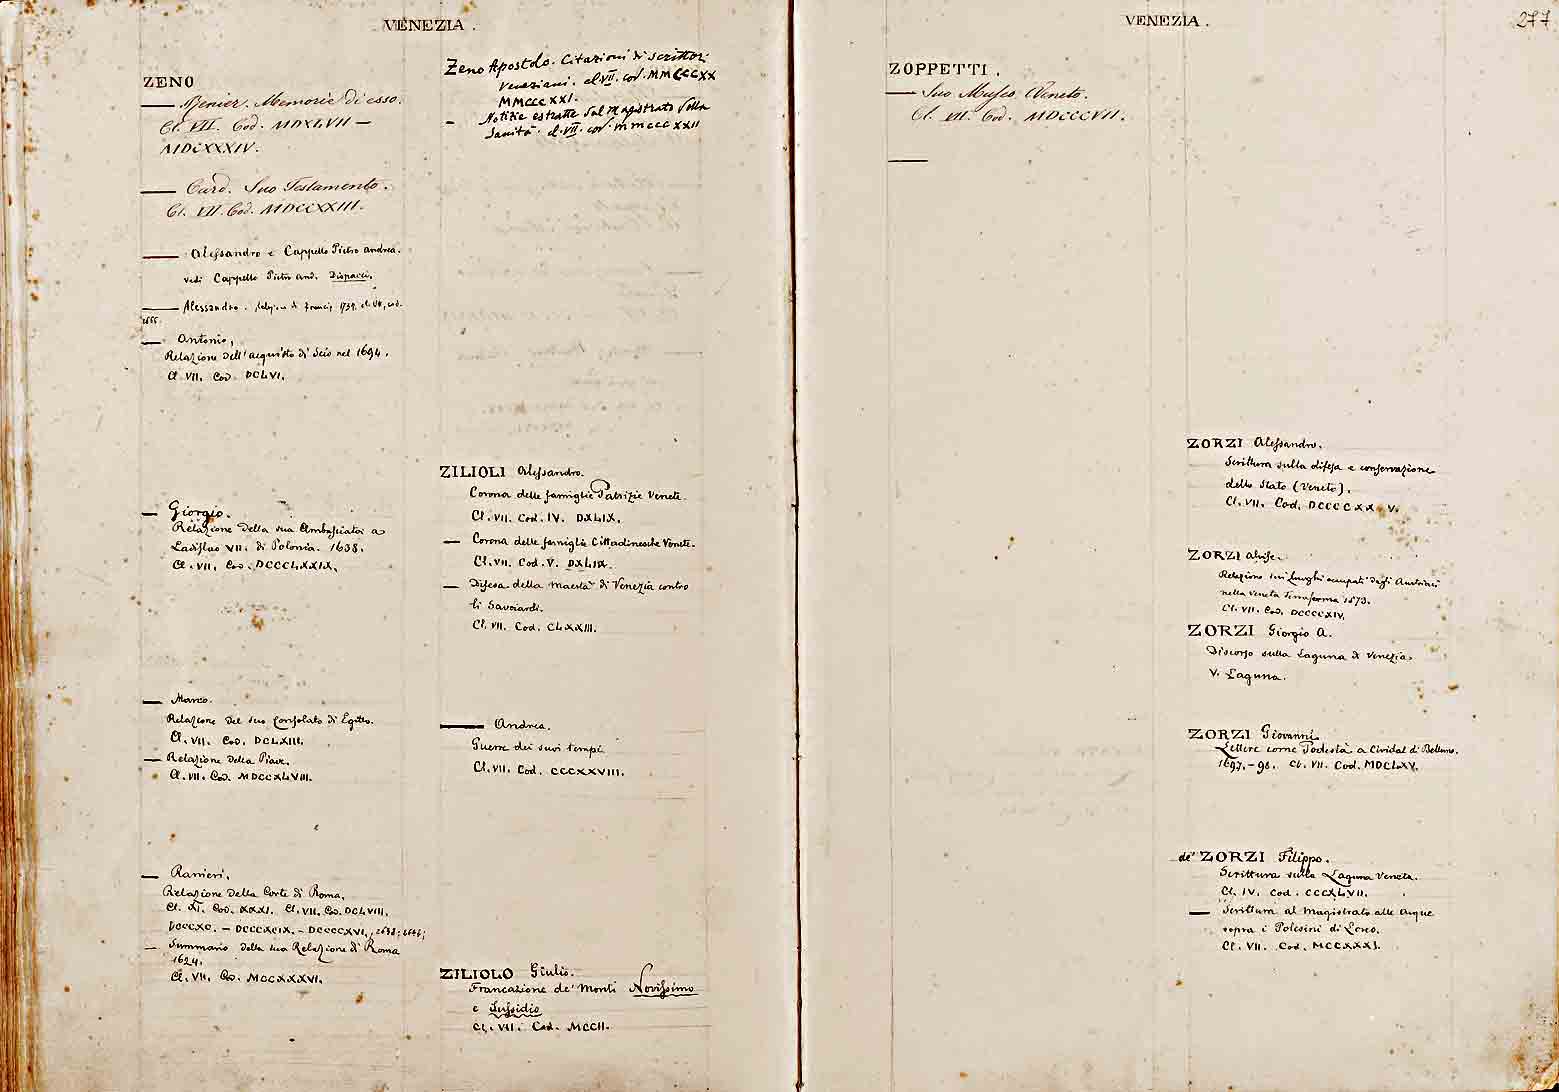 VENEZIA.
ZENO
— Renier. Memorie di esso.
Cl. VII. Cod. MDXLVII —
MDCXXXIV.
— Card. Suo Testamento.
Cl. VII. Cod. MDCCXXIII.
— Alessandro e Cappello Pietro Andrea.
vedi Cappello Pietro And. Dispacci.
— Alessandro. Relazione di Francia, 1739. cl. VII, cod.
1666.
— Antonio,
Relazione dell'acquisto di Scio nel 1694.
Cl. VII. Cod. DCLVI.
— Giorgio.
Relazione della sua Ambasciata a
Ladislao VII. di Polonia. 1638.
Cl. VII. Cod. DCCCLXXIX.
— Marco.
Relazione del suo Consolato di Egitto.
Cl. VII. Cod. DCLXIII.
— Relazione della Piave.
Cl. VII. Cod. MDCCXLVIII.
— Ranieri.
Relazione della Corte di Roma.
Cl. XI. Cod. XXXI. Cl. VII. Cod. DCLVIII.
DCCCXC. — DCCCXCIX. — DCCCCXVI.
— Summario della sua Relazione di Roma
1624.
Cl. VII. Cod. MCCXXXVI.
Zeno Apostolo. Citazioni di scrittori
Veneziani. cl. VII. cod. MMCCCXX
MMCCCXXI.
— Notizie estratte dal Magistrato della
Sanità. cl. VII. cod. MMCCCXXII
ZILIOLI Alessandro.
Corona delle famiglie Patrizie Venete.
Cl. VII. Cod. IV. DXLIX.
— Corona delle famiglie Cittadinesche Venete.
Cl. VII. Cod. V. DXLIX.
— Difesa della maestà di Venezia contro
li Savoiardi.
Cl. VII. Cod. CLXXIII.
— Andrea.
Guerre dei suoi tempi.
Cl. VII. Cod. CCCXXVIII.
ZILIOLO Giulio.
Francazione de' Monti Novissimo
e Sussidio
Cl. VII. Cod. MCCII.
VENEZIA.
277
ZOPPETTI.
— Suo Museo Veneto.
Cl. VII. Cod. MDCCCVII.
—
ZORZI Alessandro.
Scrittura sulla difesa e conservazione
dello Stato (Veneto).
Cl. VII. Cod. DCCCCXX V.
ZORZI Alvise.
Relazione sui luoghi occupati dagli Austriaci
nella Veneta Terraferma
Cl. VII. Cod. DCCCCXIV.
ZORZI Giorgio A.
Discorso sulla Laguna di Venezia.
V. Laguna.
ZORZI Giovanni
Lettere come Podestà a Cividal di Belluno.
1697.-98. Cl. VII. Cod. MDCLXV.
de' ZORZI Filippo.
Scrittura sulla Laguna Veneta.
Cl. IV. Cod. CCCXLVII.
— Scrittura al Magistrato alle Acque
sopra i Polesini di Loreo.
Cl. VII. Cod. MCCXXXI.